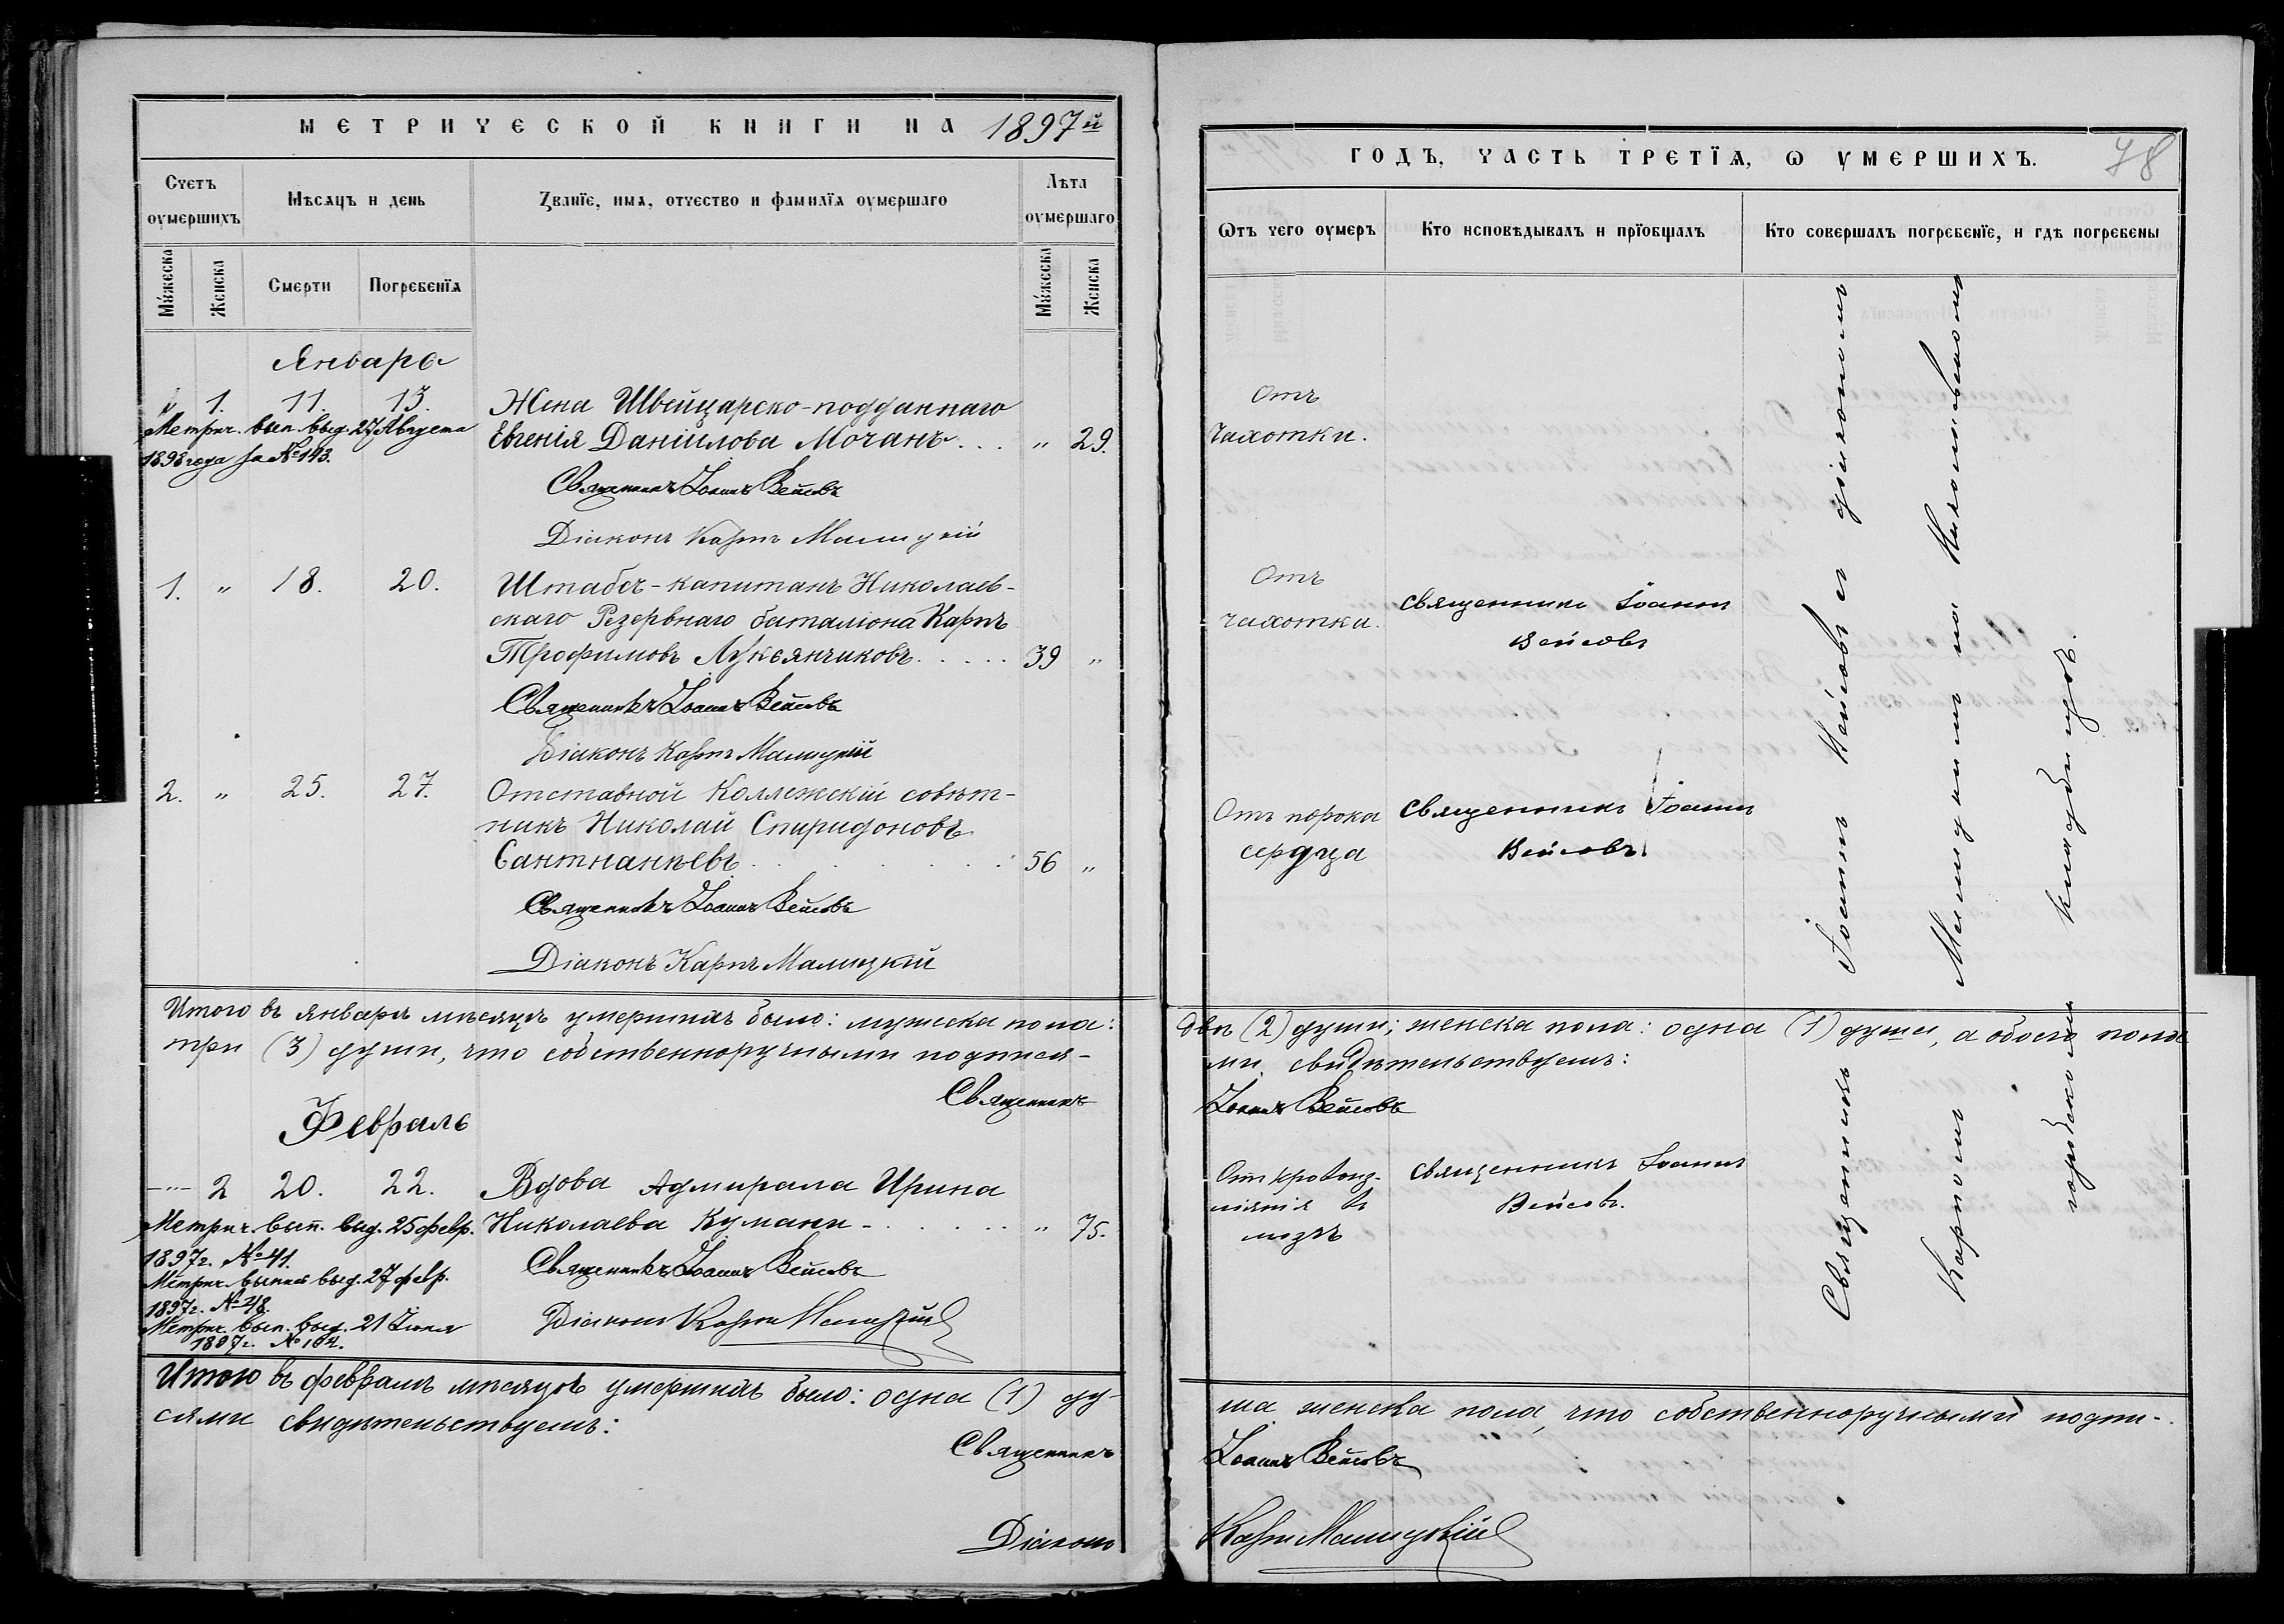 МЕТРИЧЕСКОЙ КНИГИ НА 1897й
Счетъ оумершихъ
Мѣсяцъ и день
Званїе, имя, отчество и фамилїя оумершаго
Лѣта оумершаго
Мужеска
Женска
Смерти
Погребенїя
Мужеска
Женска
Январь
1. 11. 13. Жена Швейцарско-подданнаго
Метрич. вып. выд. 27 Августа
Евгенія Даніилова Мочанъ . . . „ 29.
1898 года за № 143.
Священникъ Іоаннъ Вейсовъ
Діаконъ Карпъ Малицкій
1. „ 18. 20. Штабсъ-капитанъ Николаев-
скаго Резервнаго баталіона Карпъ
Трофимовъ Лукьянчиковъ . . . . . 39 „
Священникъ Іоаннъ Вейсовъ
Діаконъ Карпъ Малицкій
2. „ 25. 27. Отставной Коллежскій совѣт-
никъ Николай Спиридоновъ
56 „
Священникъ Іоаннъ Вейсовъ
Діаконъ Карпъ Малицкій
Итого въ январѣ мѣсяцѣ умершихъ было: мужеска пола:
три (3) души, что собственноручными подпися-
Священникъ
Февраль
2 20. 22. Вдова Адмирала Ирина
Метрич. вып. выд. 25 февр.
Николаева Кумани - . . . . . . „ 75.
1897 г. № 41.
Священникъ Іоаннъ Вейсовъ
Метрич. выпись выд. 27 февр.
1897 г. № 48.
Діаконъ Карпъ Малицкій
Метрич. вып. выд. 21 Іюня
1897 г. № 104.
Итого въ февралѣ мѣсяцѣ умершихъ было: одна (1) ду-
сями свидѣтельствуемъ:
Священникъ
Діаконъ
ГОДЪ, ЧАСТЬ ТРЕТЇЯ, Ѡ УМЕРШИХЪ.
78
Ѿтъ чего оумеръ
Кто исповѣдывалъ и прїобщалъ
Кто совершалъ погребенїе, и гдѣ погребены
Отъ
чахотки.
Отъ
чахотки.
священникъ Іоаннъ
Вейсовъ
Отъ порока
сердца
священникъ Іоаннъ
Вейсовъ.
Священникъ Іоаннъ Вейсовъ съ діакономъ
Карпомъ Малицкимъ на Николаевскомъ
городскомъ кладбищѣ.
двѣ (2) души; женска пола: одна (1) душа, а обоего пола
ми свидѣтельствуемъ:
Іоаннъ Вейсовъ
Отъ кровоиз-
ліянія въ
мозгъ
священникъ Іоаннъ
Вейсовъ.
ша женска пола, что собственноручными подпи-
Іоаннъ Вейсовъ
Карпъ Малицкій